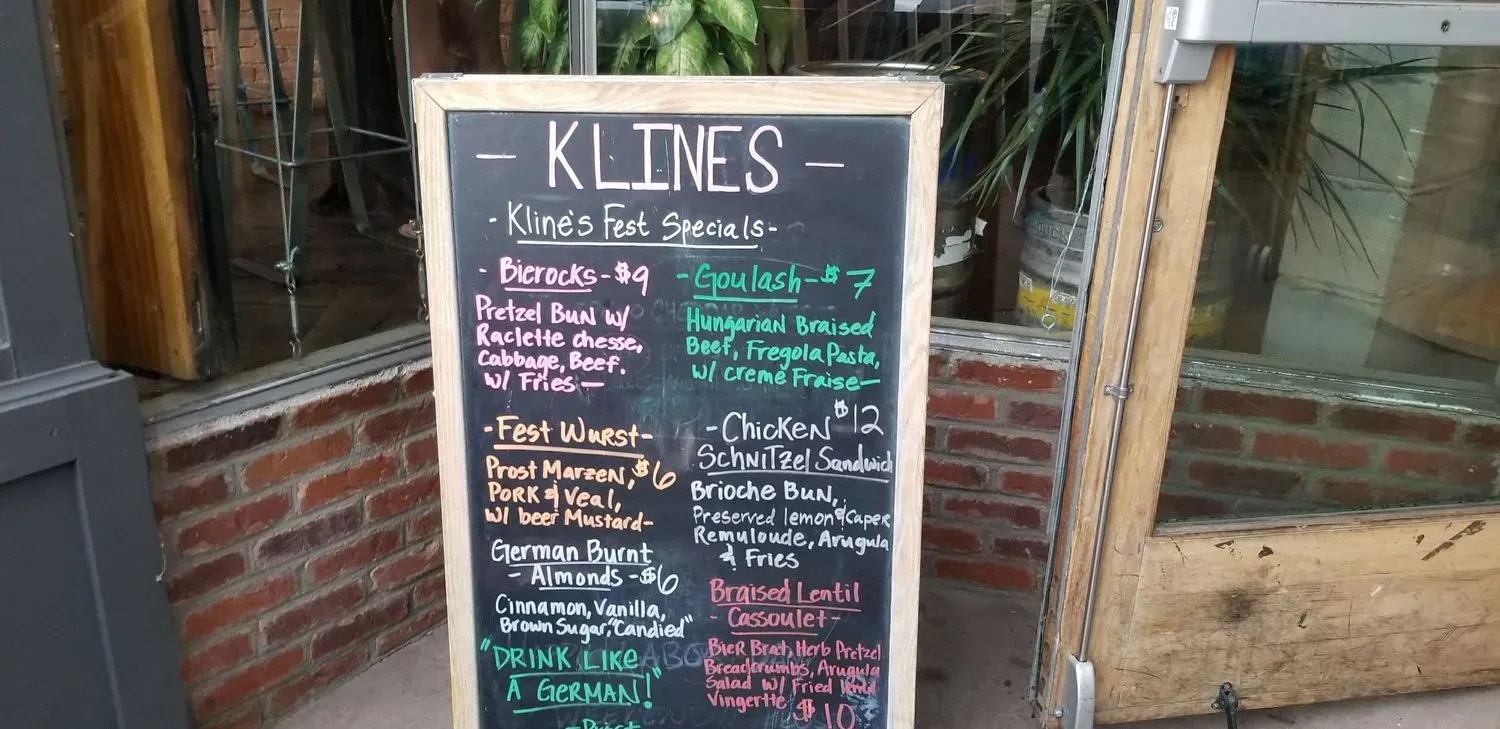 - KLINES -
- Kline's Fest Specials -
- Bierocks - $9
Pretzel Bun w/
Raclette chesse,
Cabbage, Beef.
w/ Fries —
- Fest Wurst -
Prost Marzen, $6
Pork & Veal,
w/ beer Mustard -
German Burnt
- Almonds - $6
Cinnamon, Vanilla,
Brown Sugar, "Candied"
"DRINK LIKE
A GERMAN!"
- Goulash - $7
Hungarian Braised
Beef, Fregola Pasta,
w/ creme Fraise —
- Chicken $12
Schnitzel Sandwich
Brioche Bun,
Preserved lemon & Caper
Remuloude, Arugula
& Fries
Braised Lentil
- Cassoulet -
Bier Brat, Herb Pretzel
Breadcrumbs, Arugula
Salad w/ Fried lentil
Vingertte $10